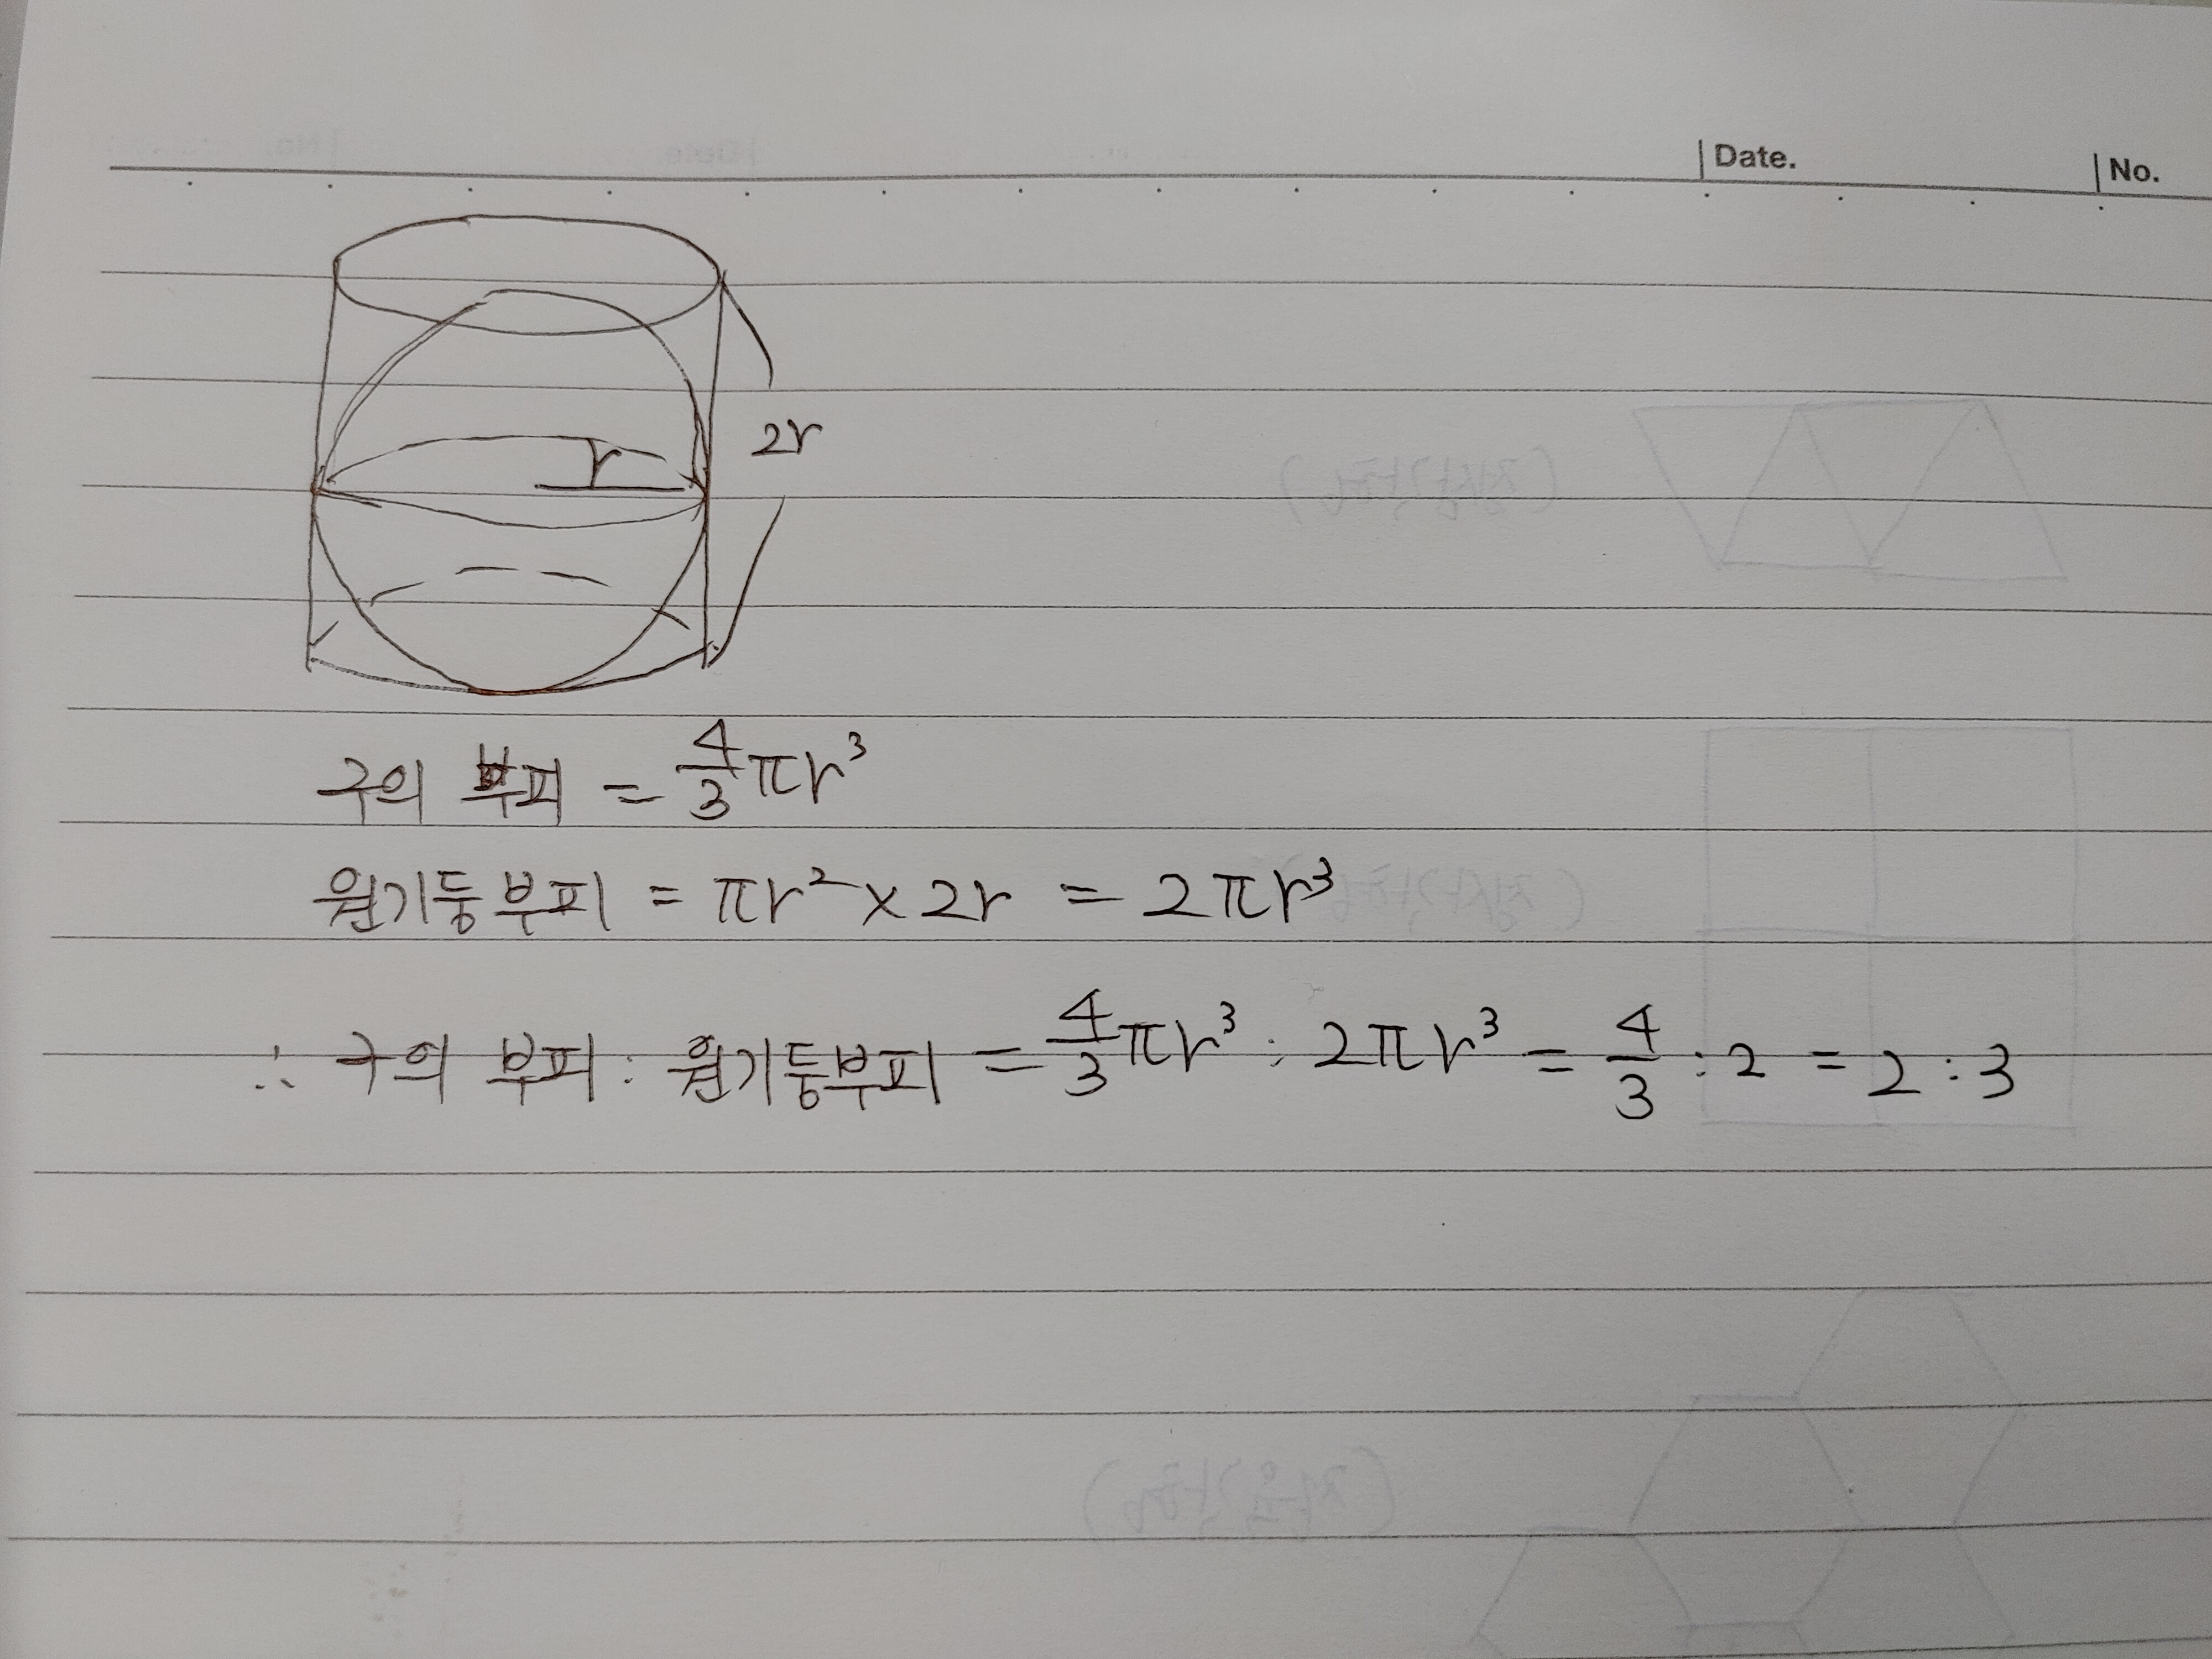 Date. No.
r
2r
구의 부피 = 4/3 πr³
원기둥부피 = πr² × 2r = 2πr³
∴ 구의 부피 : 원기둥부피 = 4/3 πr³ : 2πr³ = 4/3 : 2 = 2 : 3
(정삼각형)
(정사각형)
(정육각형)